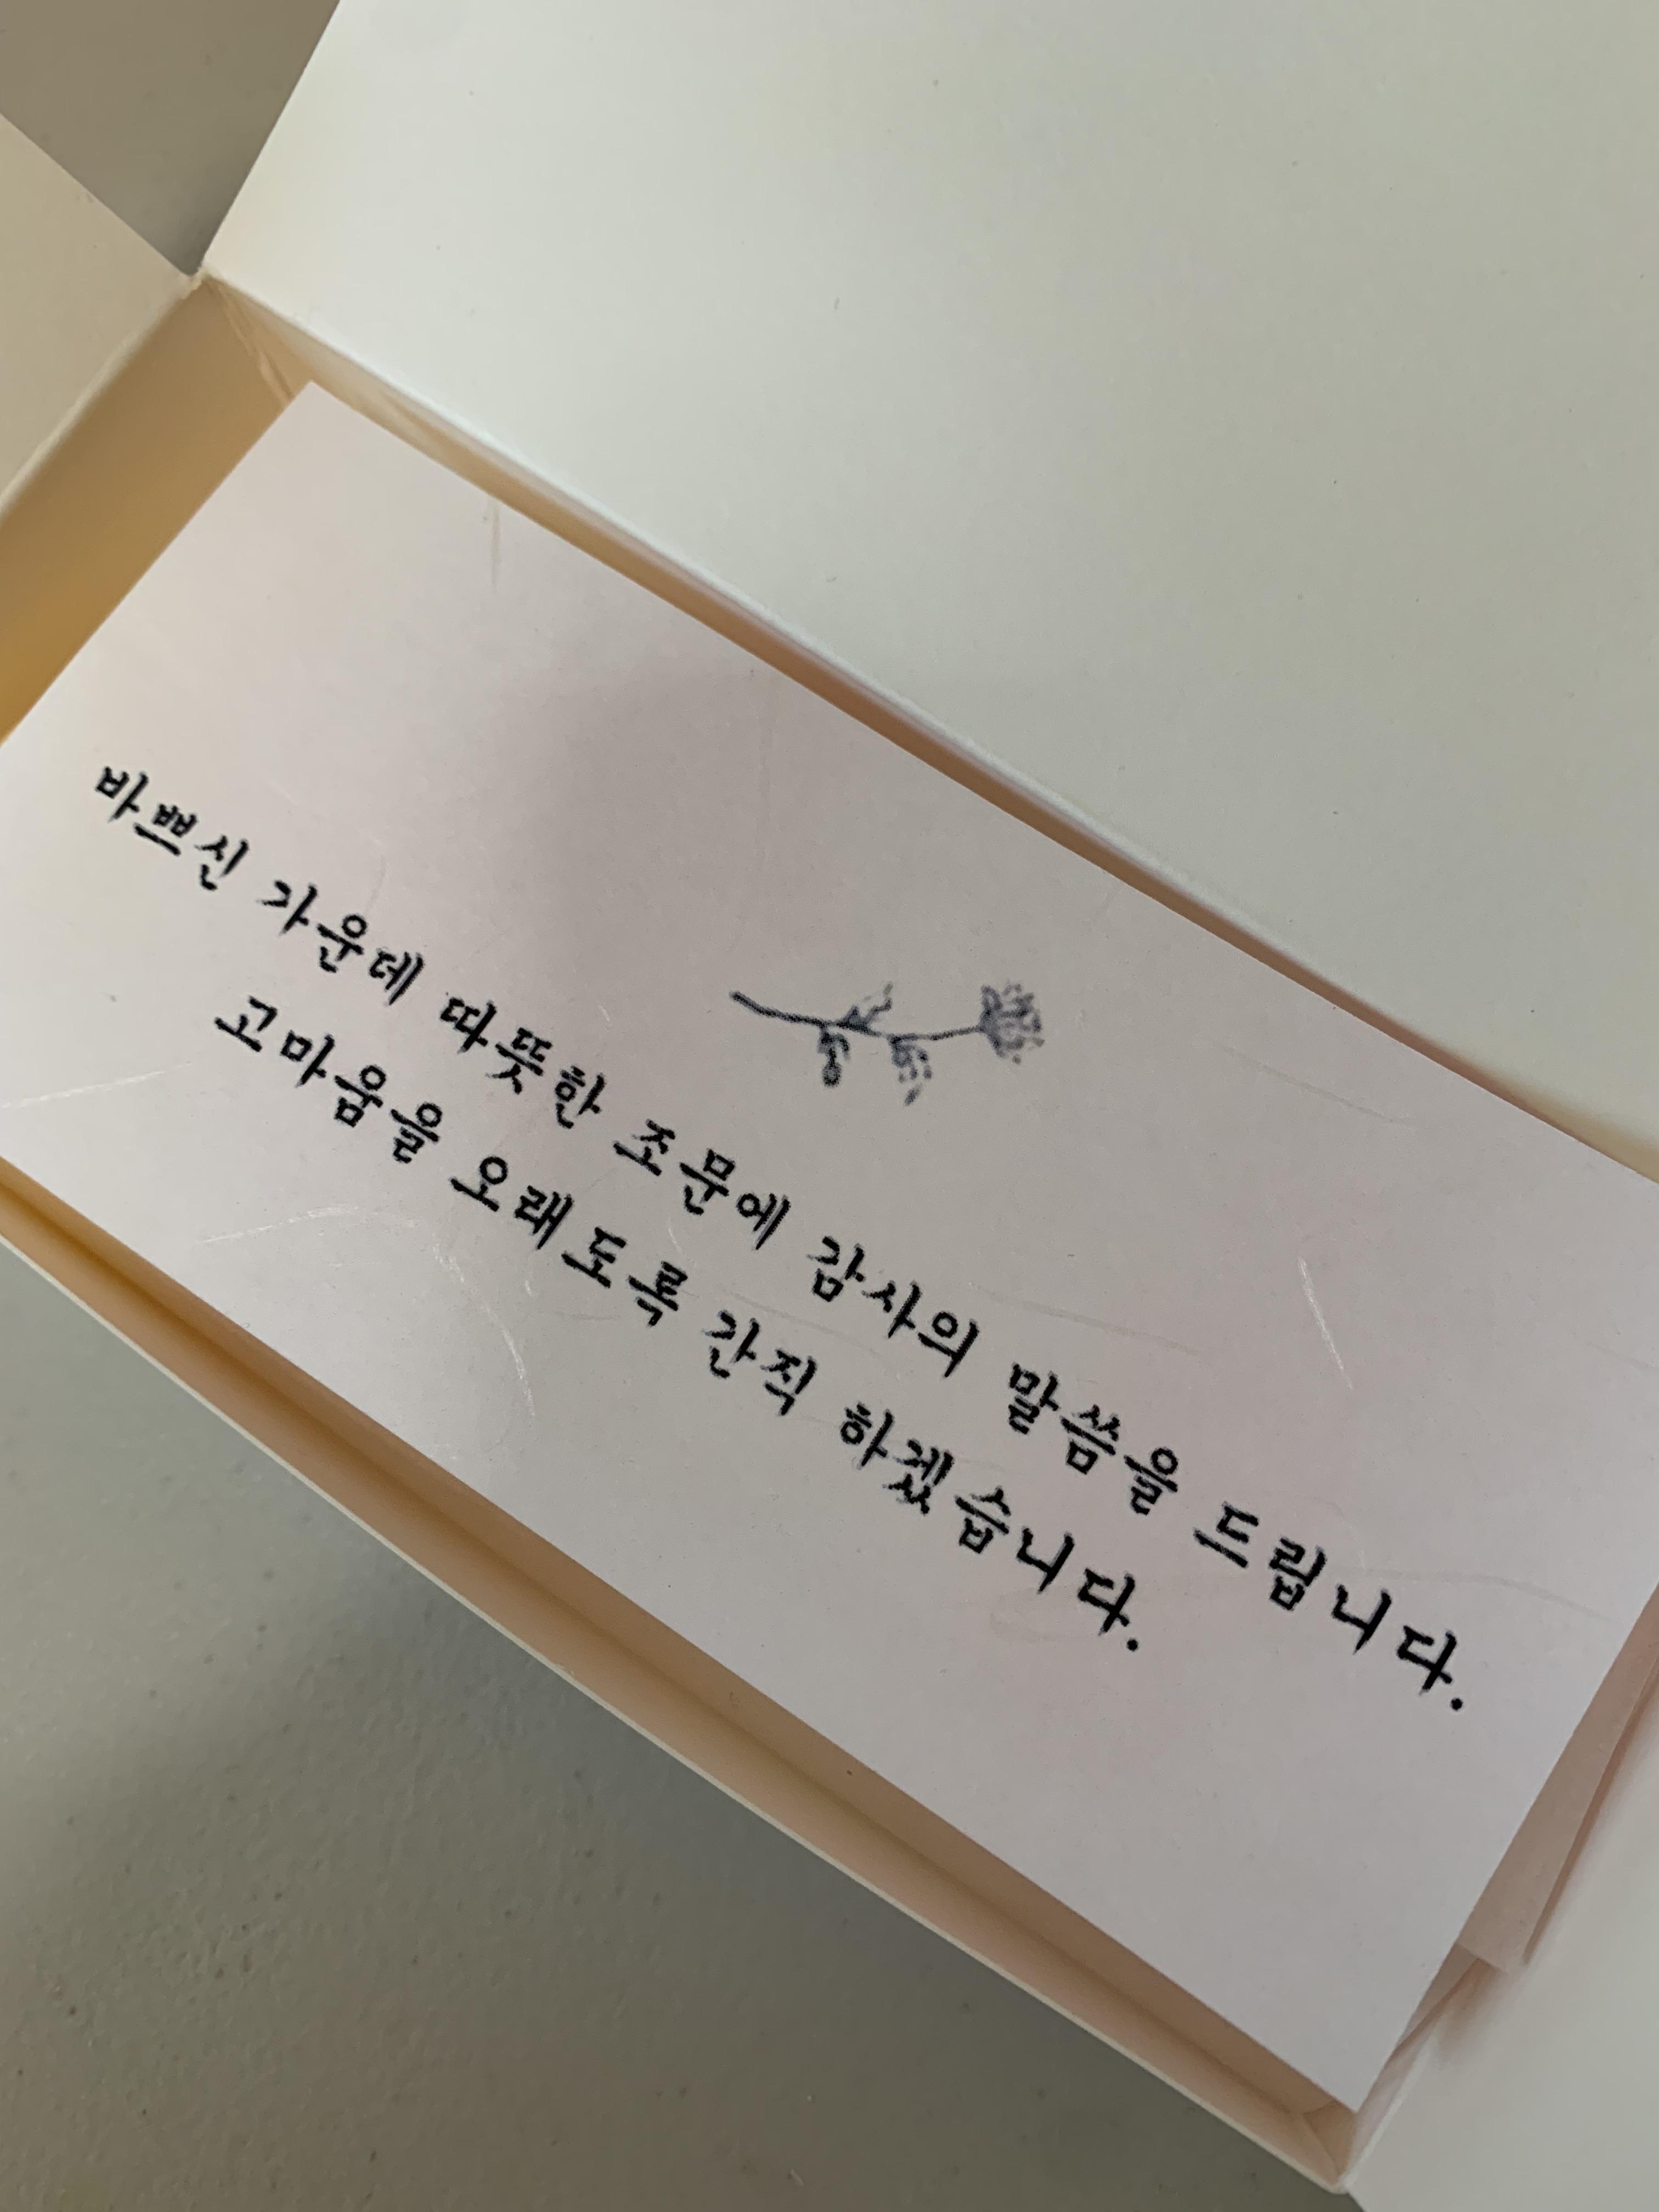 바쁘신 가운데 따뜻한 조문에 감사의 말씀을 드립니다.
고마움을 오래도록 간직 하겠습니다.